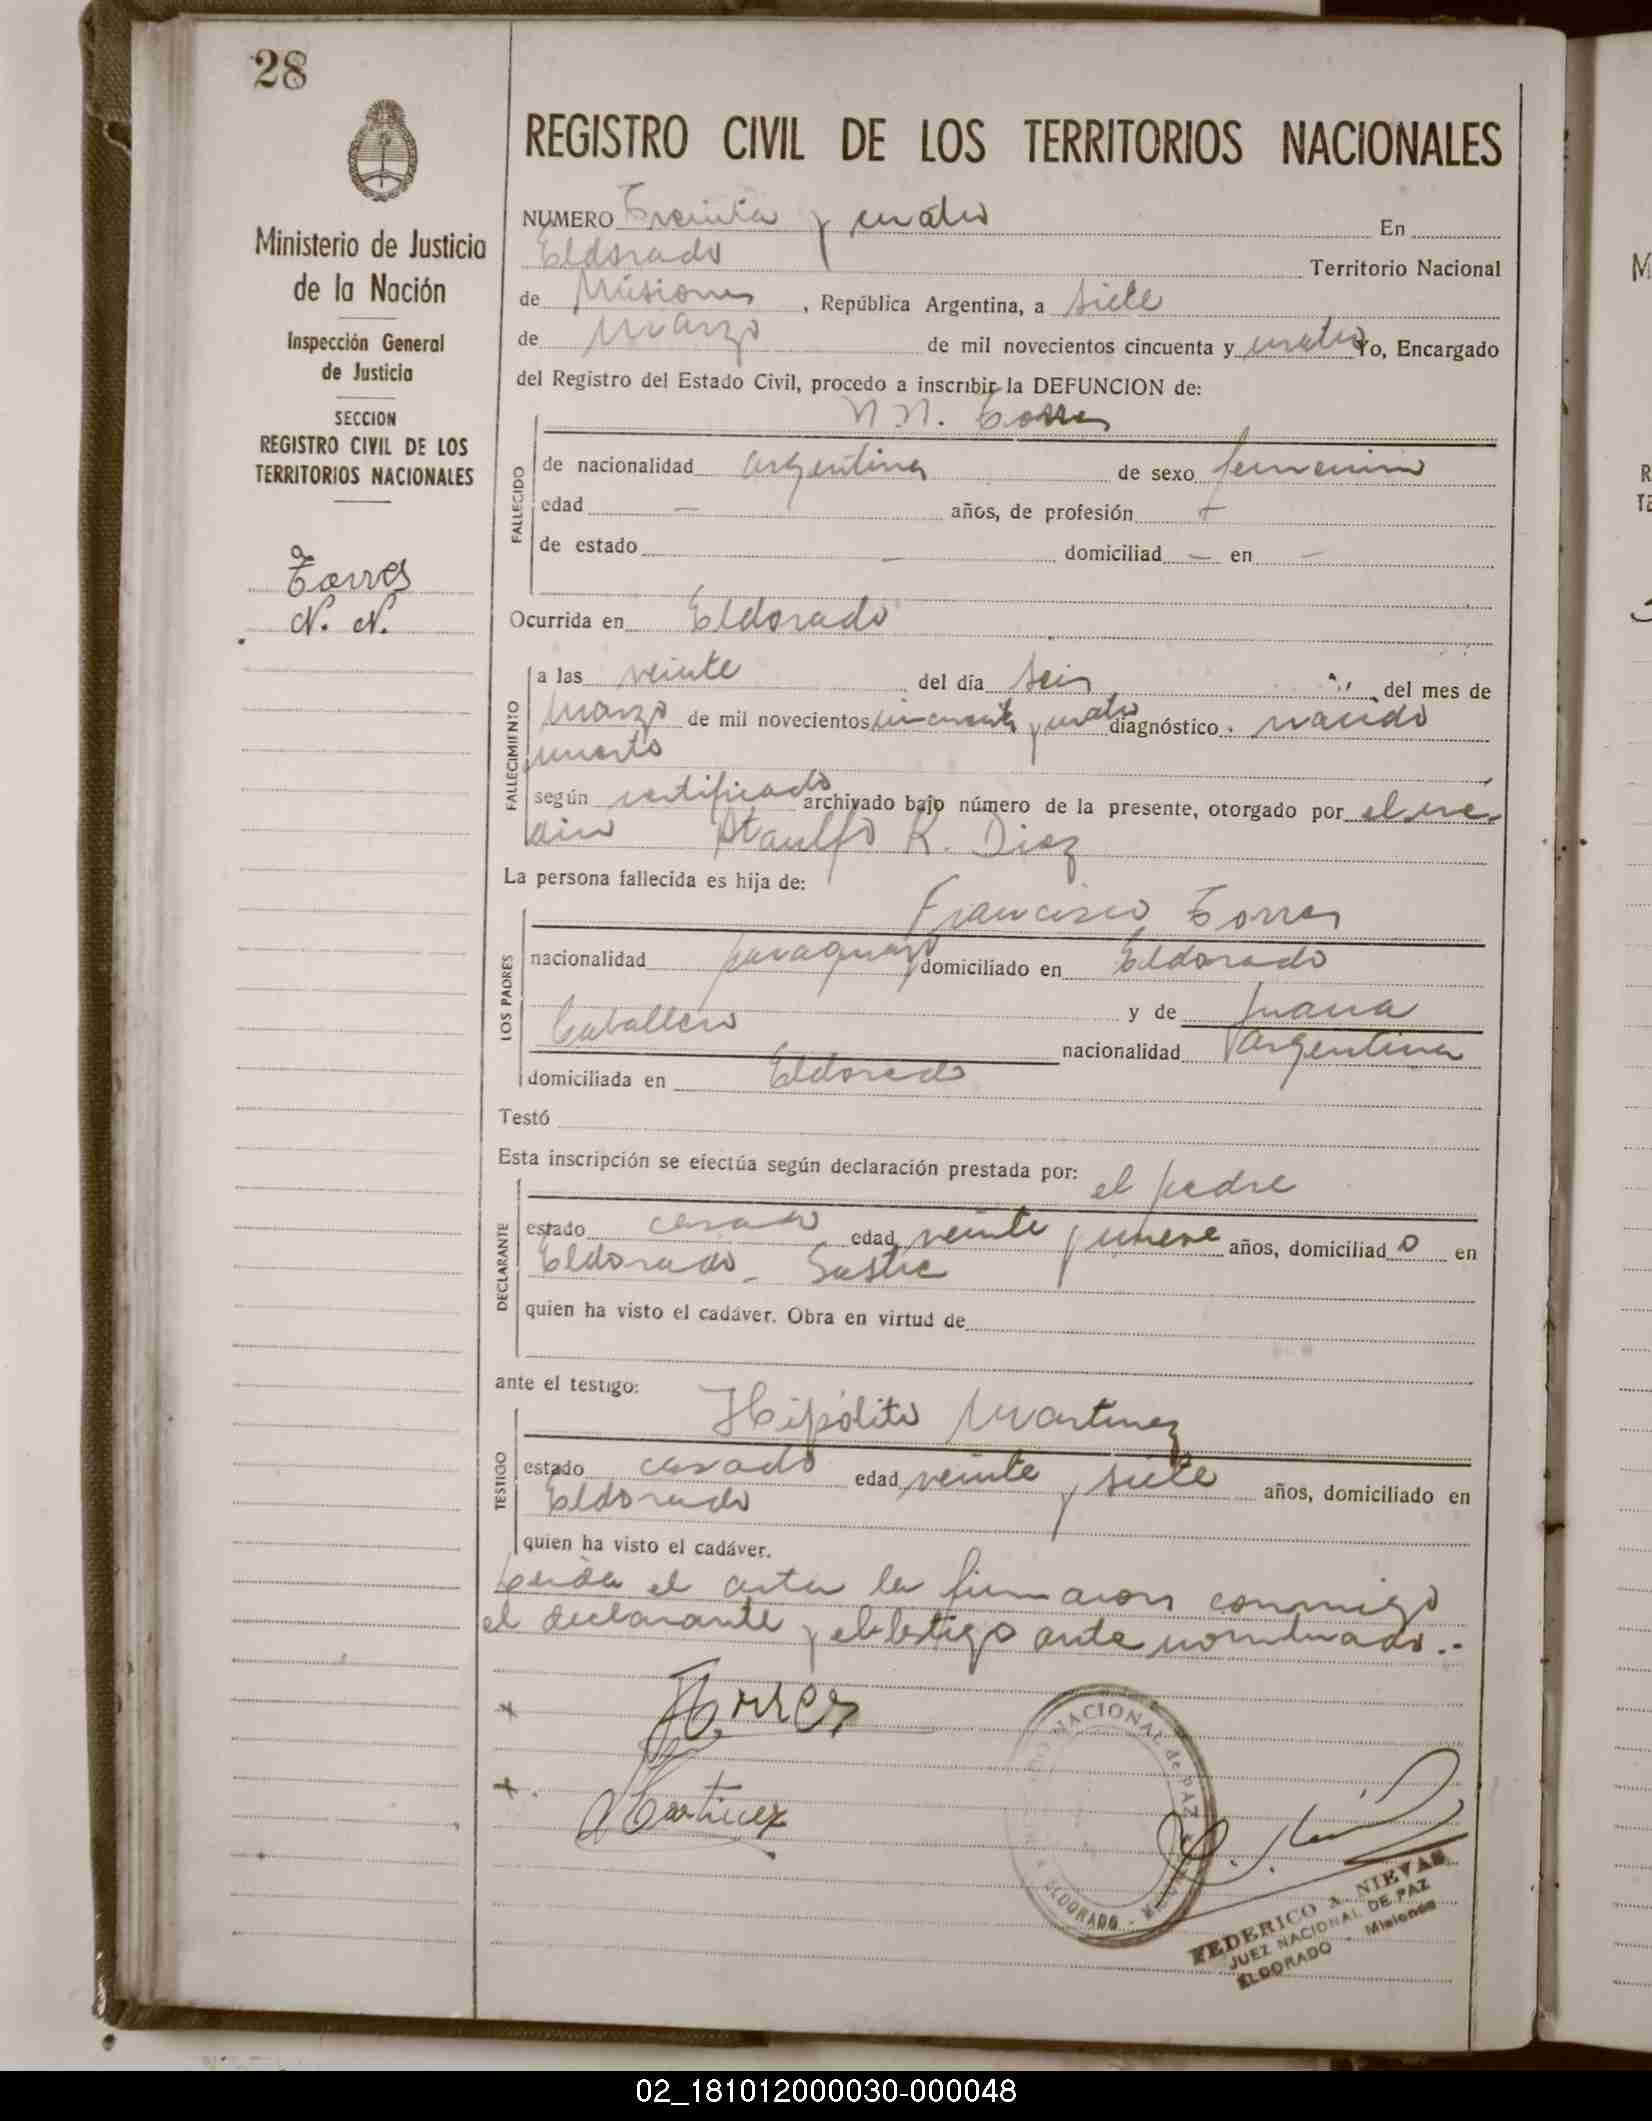 28
REGISTRO CIVIL DE LOS TERRITORIOS NACIONALES
Ministerio de Justicia
de la Nación
Inspección General
de Justicia
SECCION
REGISTRO CIVIL DE LOS
TERRITORIOS NACIONALES
Torres
N. N.
NUMERO Treinta y cuatro En
Eldorado Territorio Nacional
de Misiones, República Argentina, a siete
de Marzo de mil novecientos cincuenta y cuatro Yo, Encargado
del Registro del Estado Civil, procedo a inscribir la DEFUNCION de:
N.N. Torres
FALLECIDO
de nacionalidad argentina de sexo femenino
edad — años, de profesión —
de estado — domiciliad — en —
Ocurrida en Eldorado
FALLECIMIENTO
a las veinte del día seis del mes de
Marzo de mil novecientos cincuenta y cuatro diagnóstico. nacido
muerto
según certificado archivado bajo número de la presente, otorgado por el mé-
dico Ataulfo R. Diez
La persona fallecida es hija de:
Francisco Torres
LOS PADRES
nacionalidad paraguayo domiciliado en Eldorado
y de Juana
Caballero
nacionalidad argentina
domiciliada en Eldorado
Testó
Esta inscripción se efectúa según declaración prestada por: el padre
DECLARANTE
estado casado edad veinte y nueve años, domiciliad o en
Eldorado - Sastre
quien ha visto el cadáver. Obra en virtud de
ante el testigo:
Hipólito Martinez
TESTIGO
estado casado edad veinte y siete años, domiciliado en
Eldorado
quien ha visto el cadáver.
Leida el acta la firmaron conmigo
el declarante y el testigo ante nombrado.-
x Torres
x. Martinez
NACIONAL de PAZ
ELDORADO -
FEDERICO A. NIEVAS
JUEZ NACIONAL DE PAZ
ELDORADO - Misiones
02_181012000030-000048